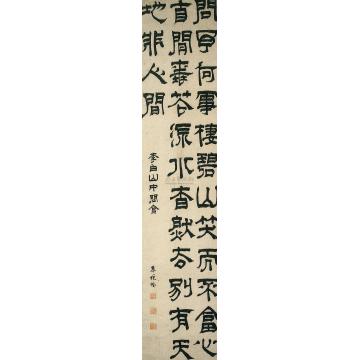 問君何事棲碧山笑而不畣心
自閒桃花流水杳然去别有天
地非人間
李白山中問畣